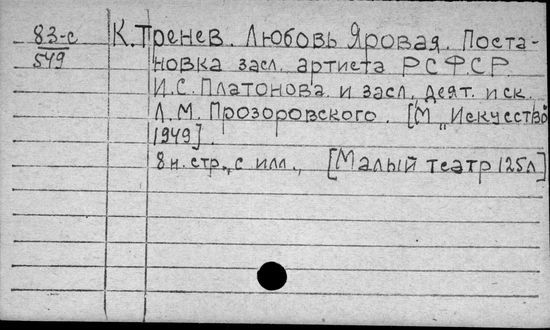 83-с К. Тренев. Любовь Яровая. Поста-
549 новка засл. артиста РСФСР.
И.С. Платонова и засл. деят. иск.
Л.М. Прозоровского. [М „Искусство
1949].
8 н. стр., с илл., [Малый театр 125 л]